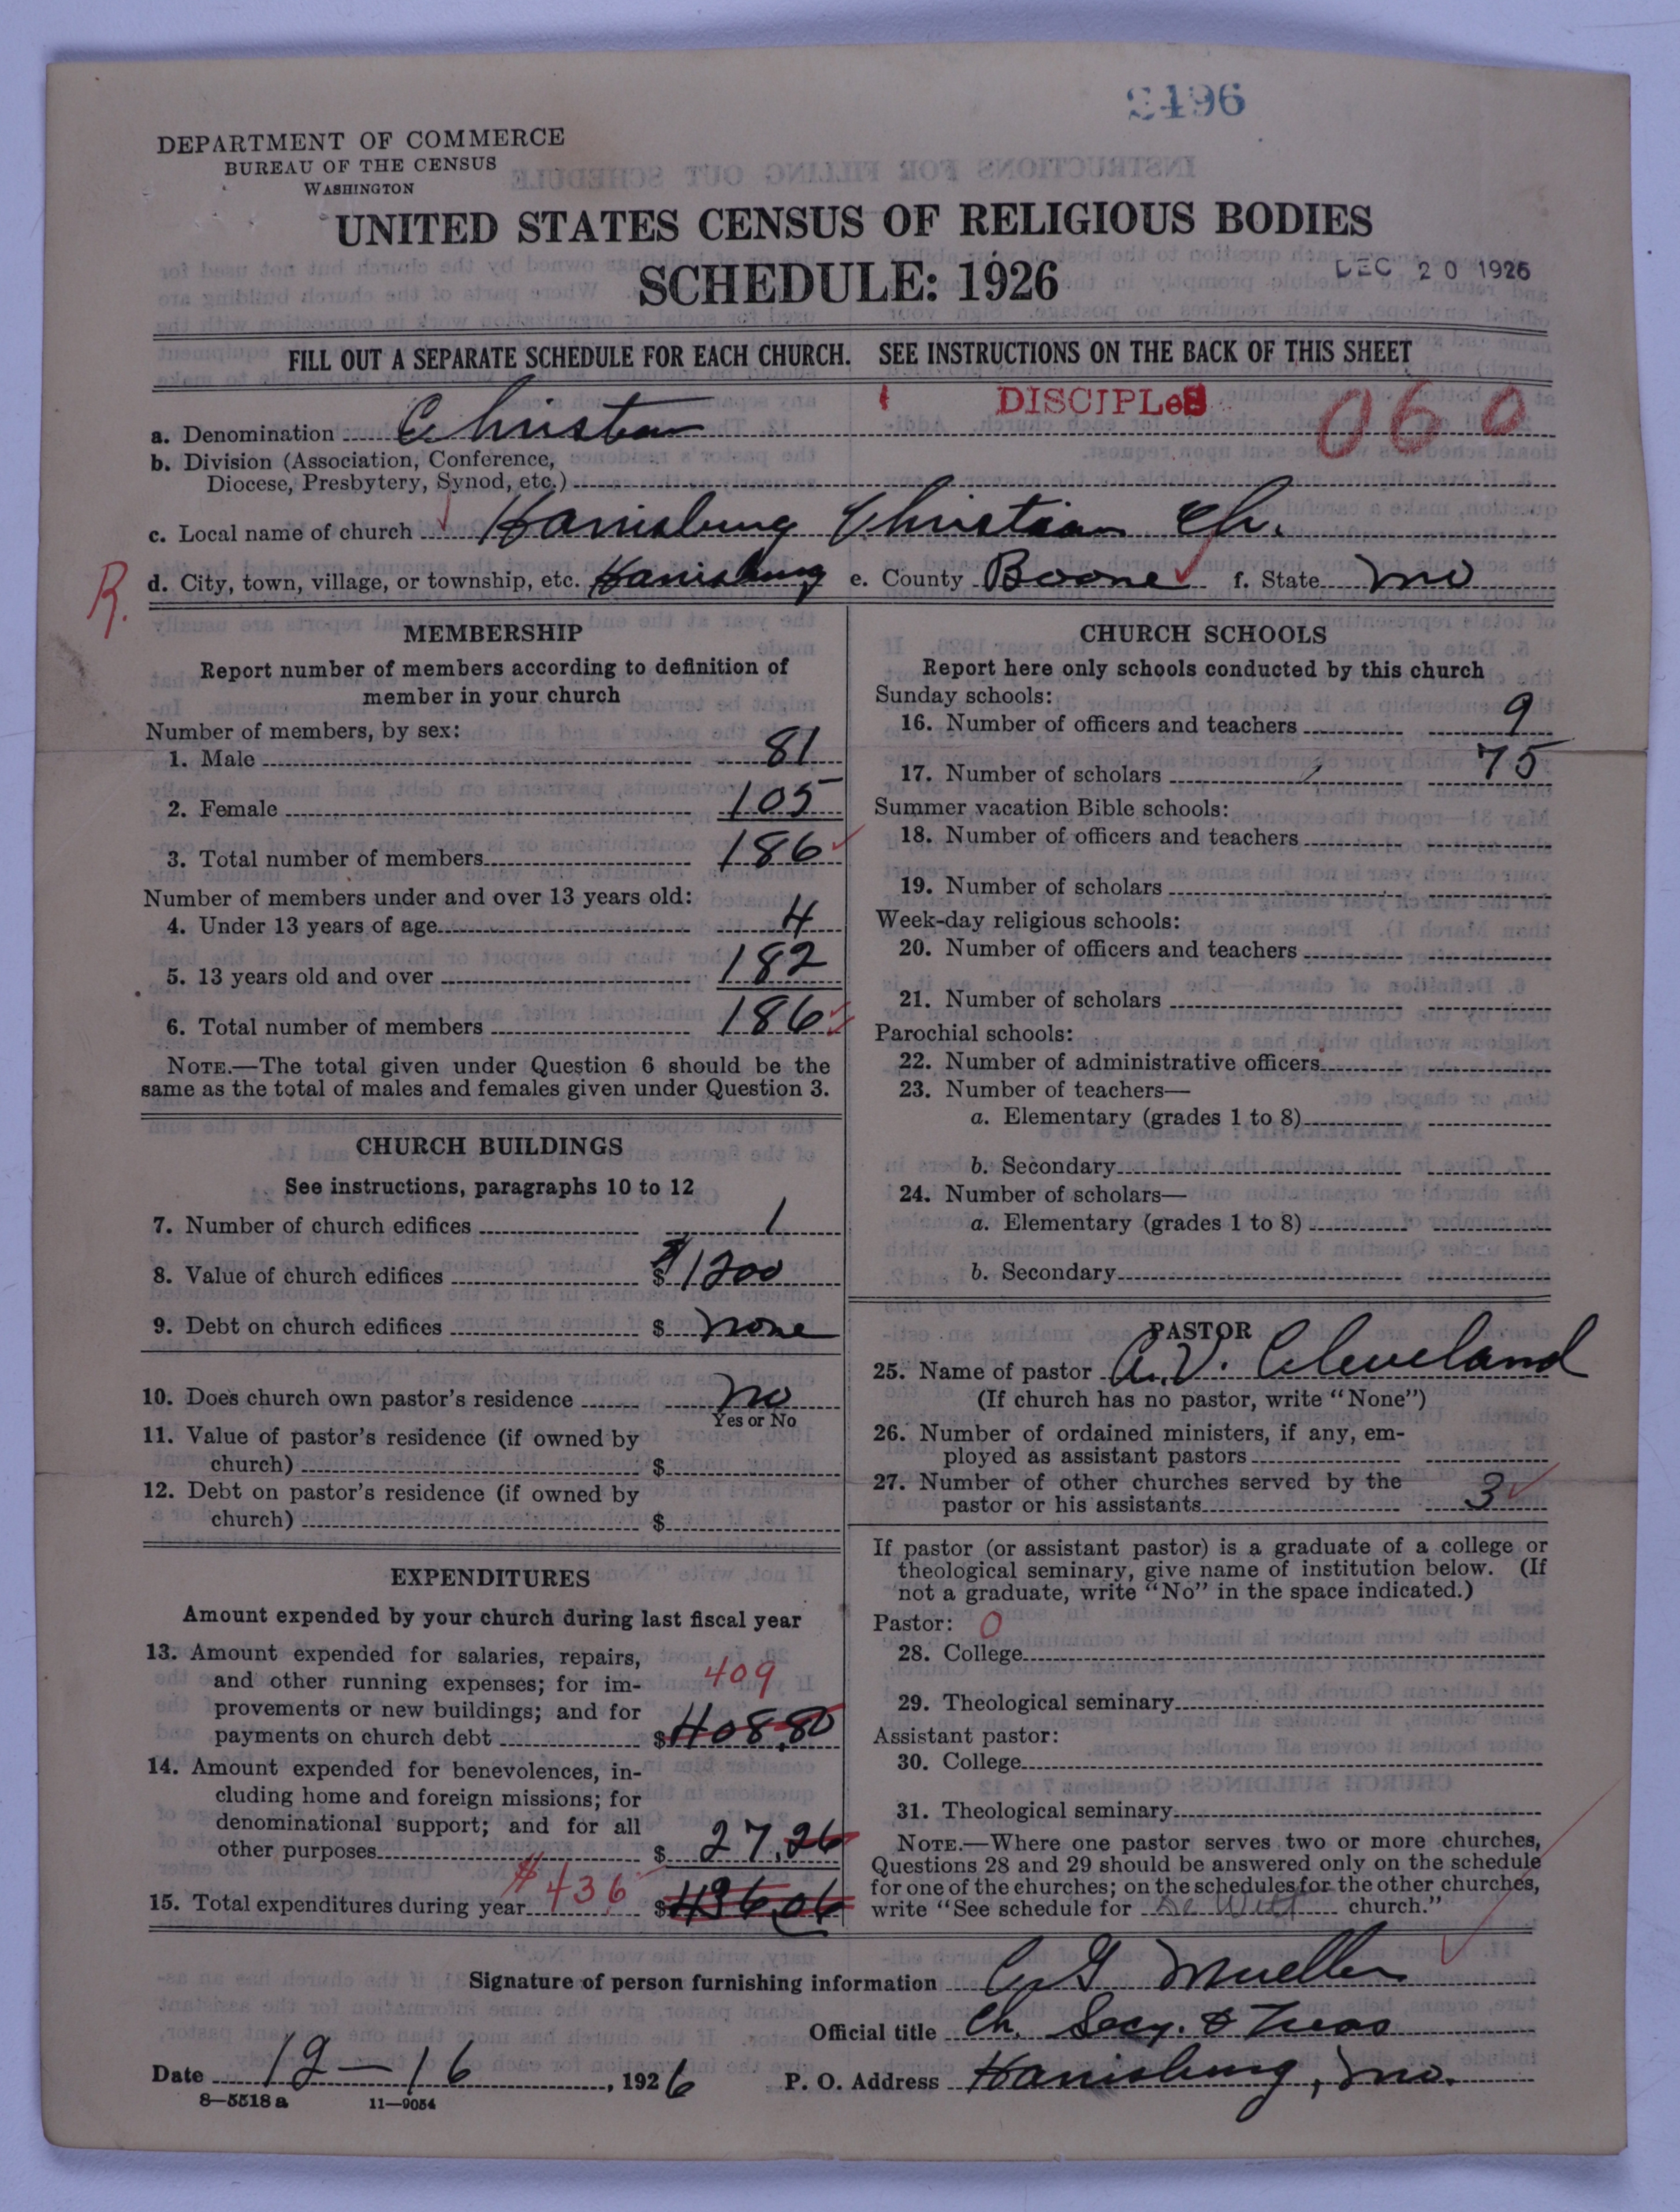 2496
DEPARTMENT OF COMMERCE
BUREAU OF THE CENSUS
WASHINGTON
UNITED STATES CENSUS OF RELIGIOUS BODIES
SCHEDULE: 1926
DEC 20 1926
FILL OUT A SEPARATE SCHEDULE FOR EACH CHURCH. SEE INSTRUCTIONS ON THE BACK OF THIS SHEET
DISCIPLeS 060
a. Denomination Christian
b. Division (Association, Conference,
Diocese, Presbytery, Synod, etc.)
c. Local name of church Harrisburg Christian Ch.
R. d. City, town, village, or township, etc. Harrisburg e. County Boone f. State Mo
MEMBERSHIP
Report number of members according to definition of
member in your church
Number of members, by sex:
1. Male 81
2. Female 105
3. Total number of members 186
Number of members under and over 13 years old:
4. Under 13 years of age 4
5. 13 years old and over 182
6. Total number of members 186
NOTE.—The total given under Question 6 should be the
same as the total of males and females given under Question 3.
CHURCH BUILDINGS
See instructions, paragraphs 10 to 12
7. Number of church edifices 1
8. Value of church edifices $ 1200
9. Debt on church edifices $ none
10. Does church own pastor's residence no
Yes or No
11. Value of pastor's residence (if owned by
church) $
12. Debt on pastor's residence (if owned by
church) $
EXPENDITURES
Amount expended by your church during last fiscal year
13. Amount expended for salaries, repairs,
and other running expenses; for im- 409
provements or new buildings; and for
payments on church debt $ 408.80
14. Amount expended for benevolences, in-
cluding home and foreign missions; for
denominational support; and for all
other purposes $ 27.26
$436
15. Total expenditures during year $ 436.06
CHURCH SCHOOLS
Report here only schools conducted by this church
Sunday schools:
16. Number of officers and teachers 9
17. Number of scholars 75
Summer vacation Bible schools:
18. Number of officers and teachers
19. Number of scholars
Week-day religious schools:
20. Number of officers and teachers
21. Number of scholars
Parochial schools:
22. Number of administrative officers
23. Number of teachers—
a. Elementary (grades 1 to 8)
b. Secondary
24. Number of scholars—
a. Elementary (grades 1 to 8)
b. Secondary
PASTOR
25. Name of pastor A. V. Cleveland
(If church has no pastor, write "None")
26. Number of ordained ministers, if any, em-
ployed as assistant pastors
27. Number of other churches served by the
pastor or his assistants 3
If pastor (or assistant pastor) is a graduate of a college or
theological seminary, give name of institution below. (If
not a graduate, write "No" in the space indicated.)
Pastor: 0
28. College
29. Theological seminary
Assistant pastor:
30. College
31. Theological seminary
NOTE.—Where one pastor serves two or more churches,
Questions 28 and 29 should be answered only on the schedule
for one of the churches; on the schedules for the other churches,
write "See schedule for De Witt church."
Signature of person furnishing information A G Mueller
Official title Ch. Secy. & Treas
Date 12-16, 1926 P. O. Address Harrisburg, Mo.
8—5518 a 11—9054